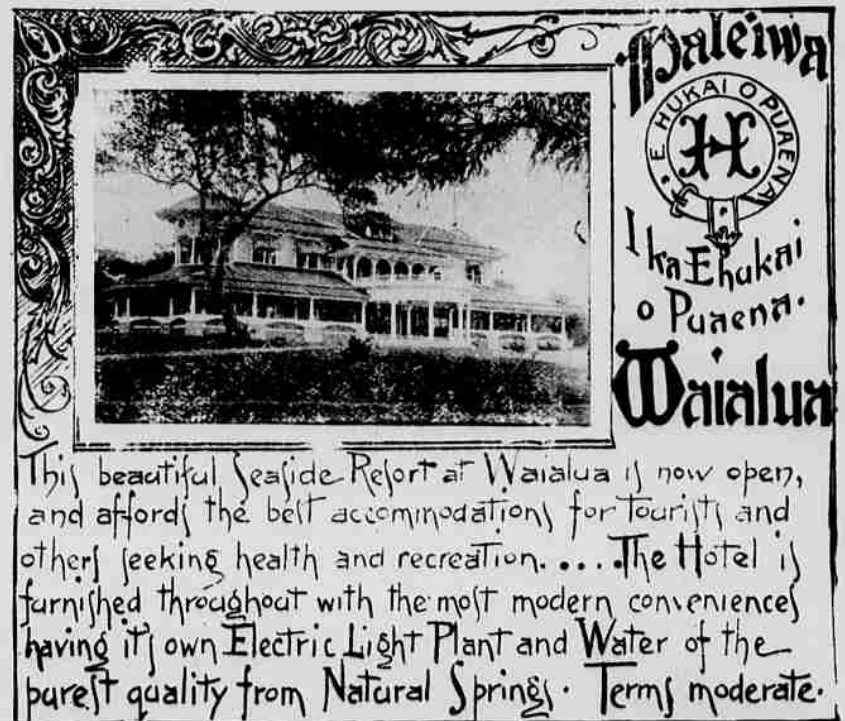 Haleiwa
E HUKAI O PUAENA
H
I ka Ehukai
o Puaena.
Waialua
This beautiful Seaside Resort at Waialua is now open,
and affords the best accommodations for Tourists and
others seeking health and recreation. .... The Hotel is
furnished throughout with the most modern conveniences
having it's own Electric Light Plant and Water of the
purest quality from Natural Springs. Terms moderate.